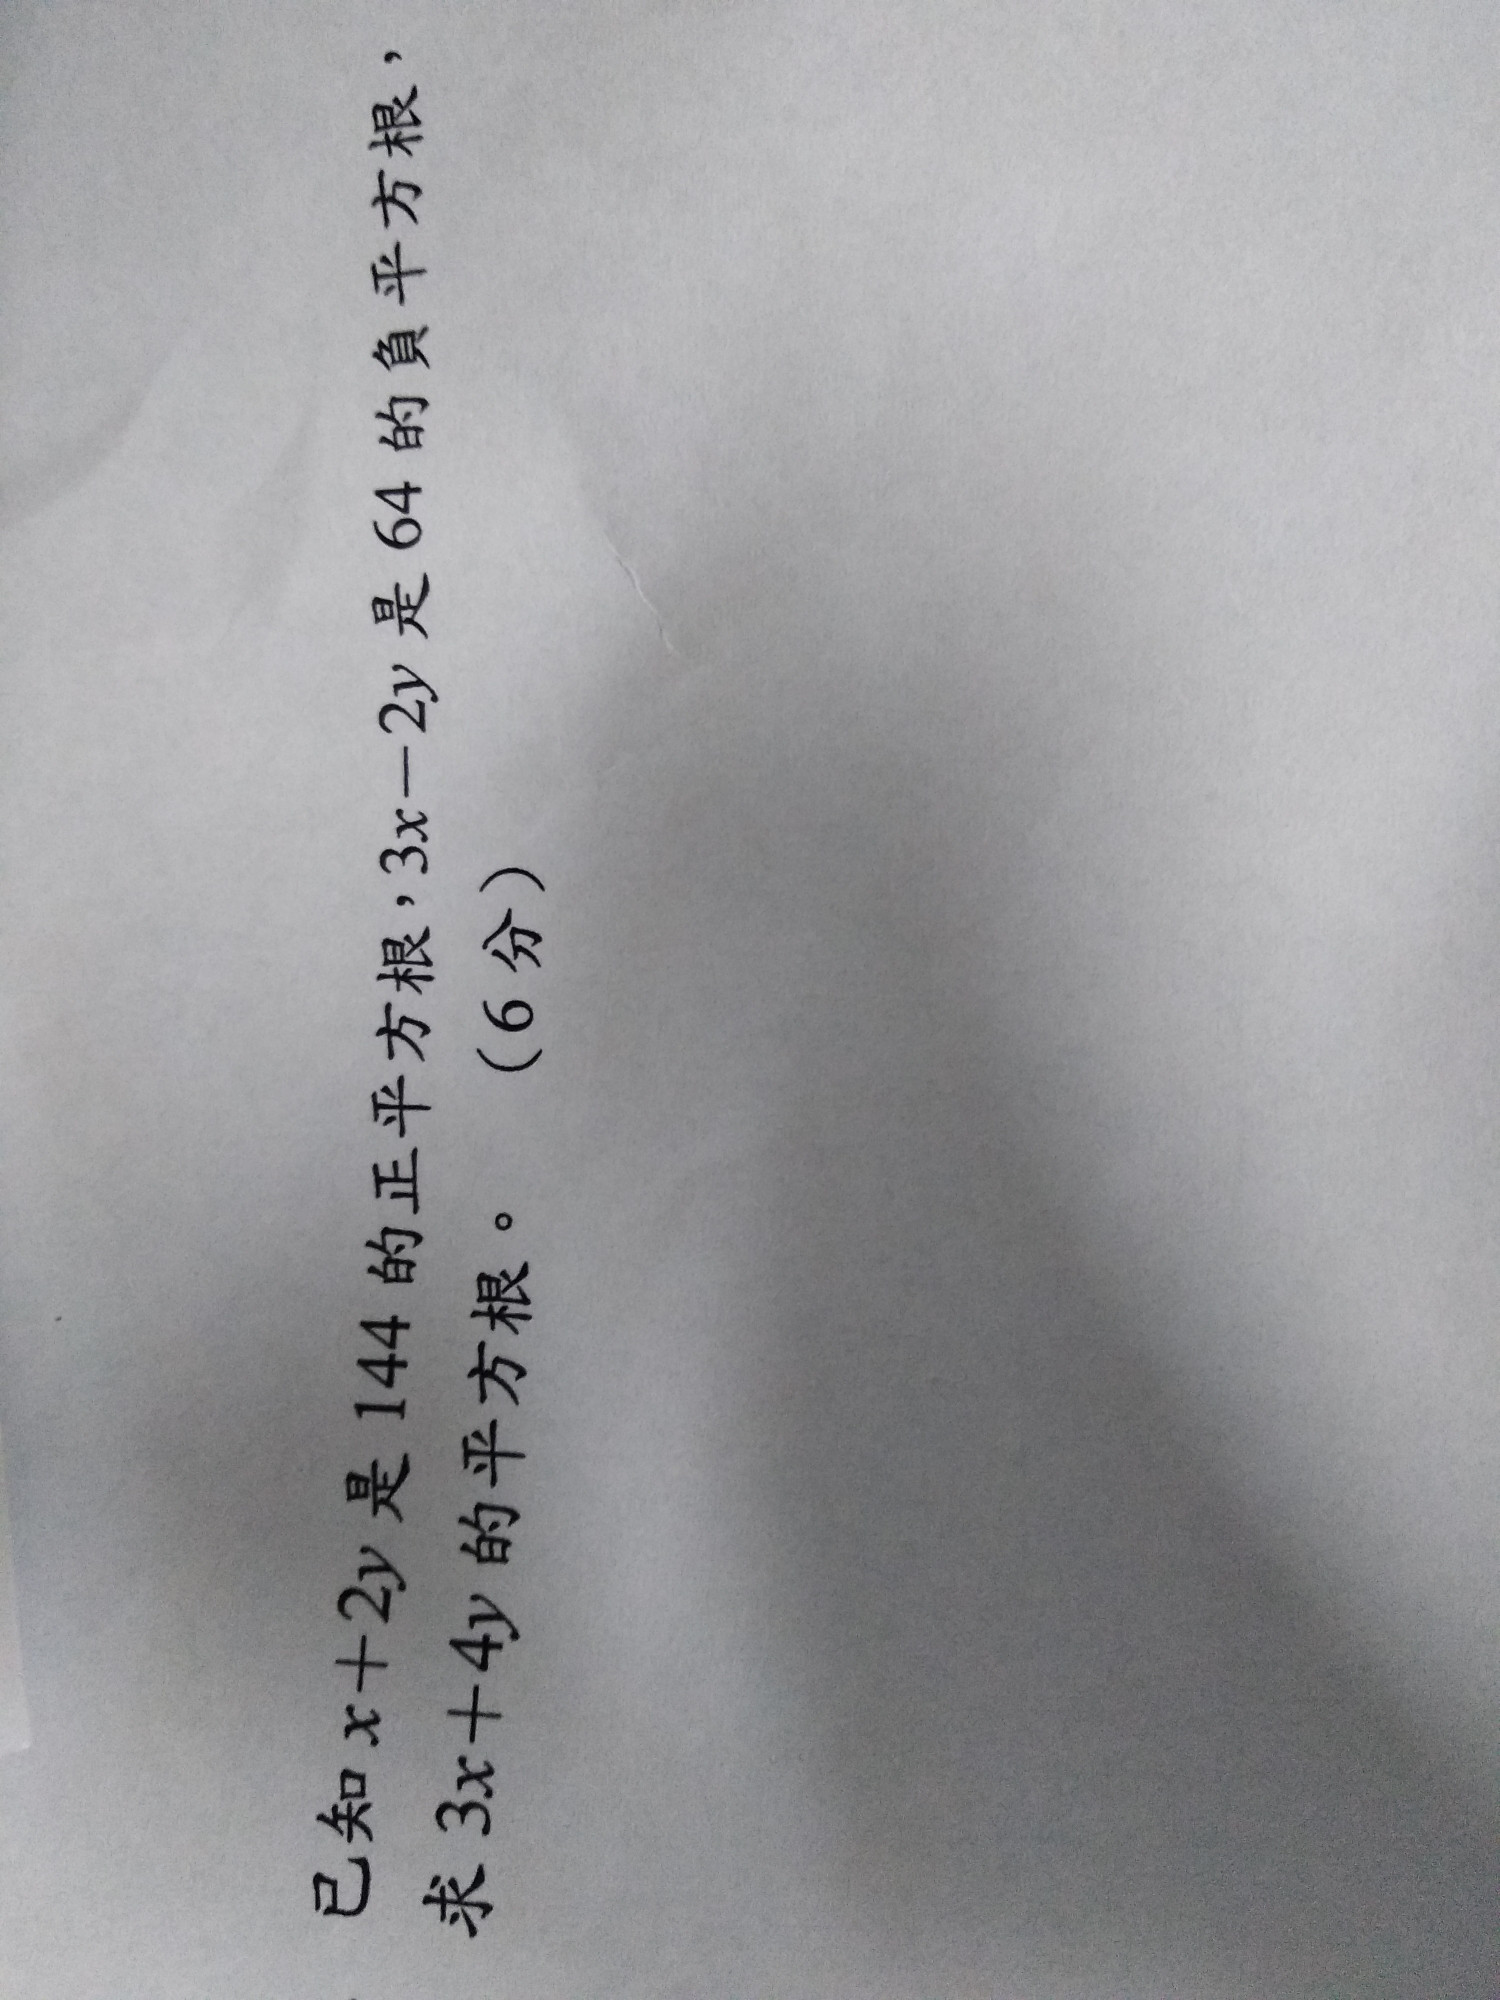 已知 x+2y 是 144 的正平方根，3x－2y 是 64 的負平方根，
求 3x＋4y 的平方根。（6 分）